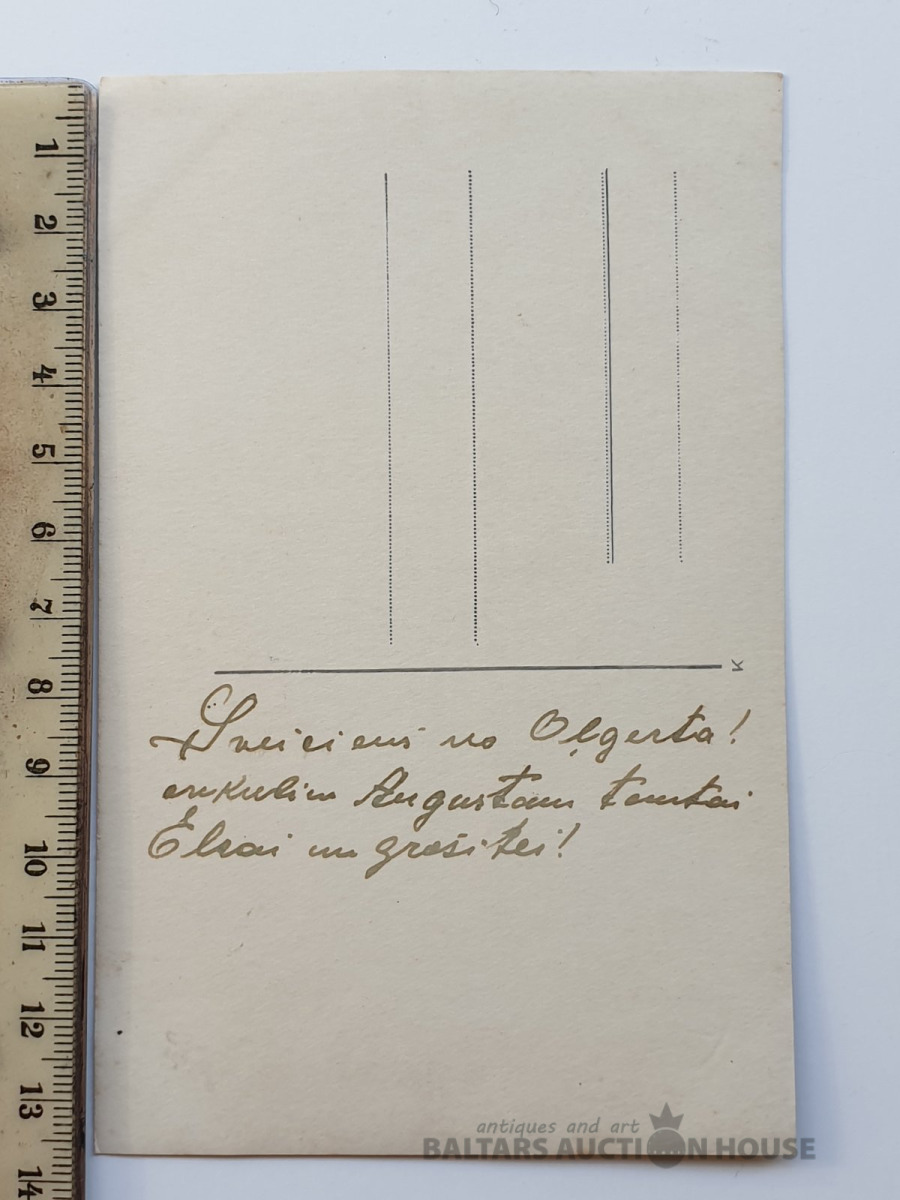 Sveiciens no Oļgerta!
onkulim Augustam tantai
Elzai un gresitei!
K
1 2 3 4 5 6 7 8 9 10 11 12 13 14
antiques and art
BALTARS AUCTION HOUSE